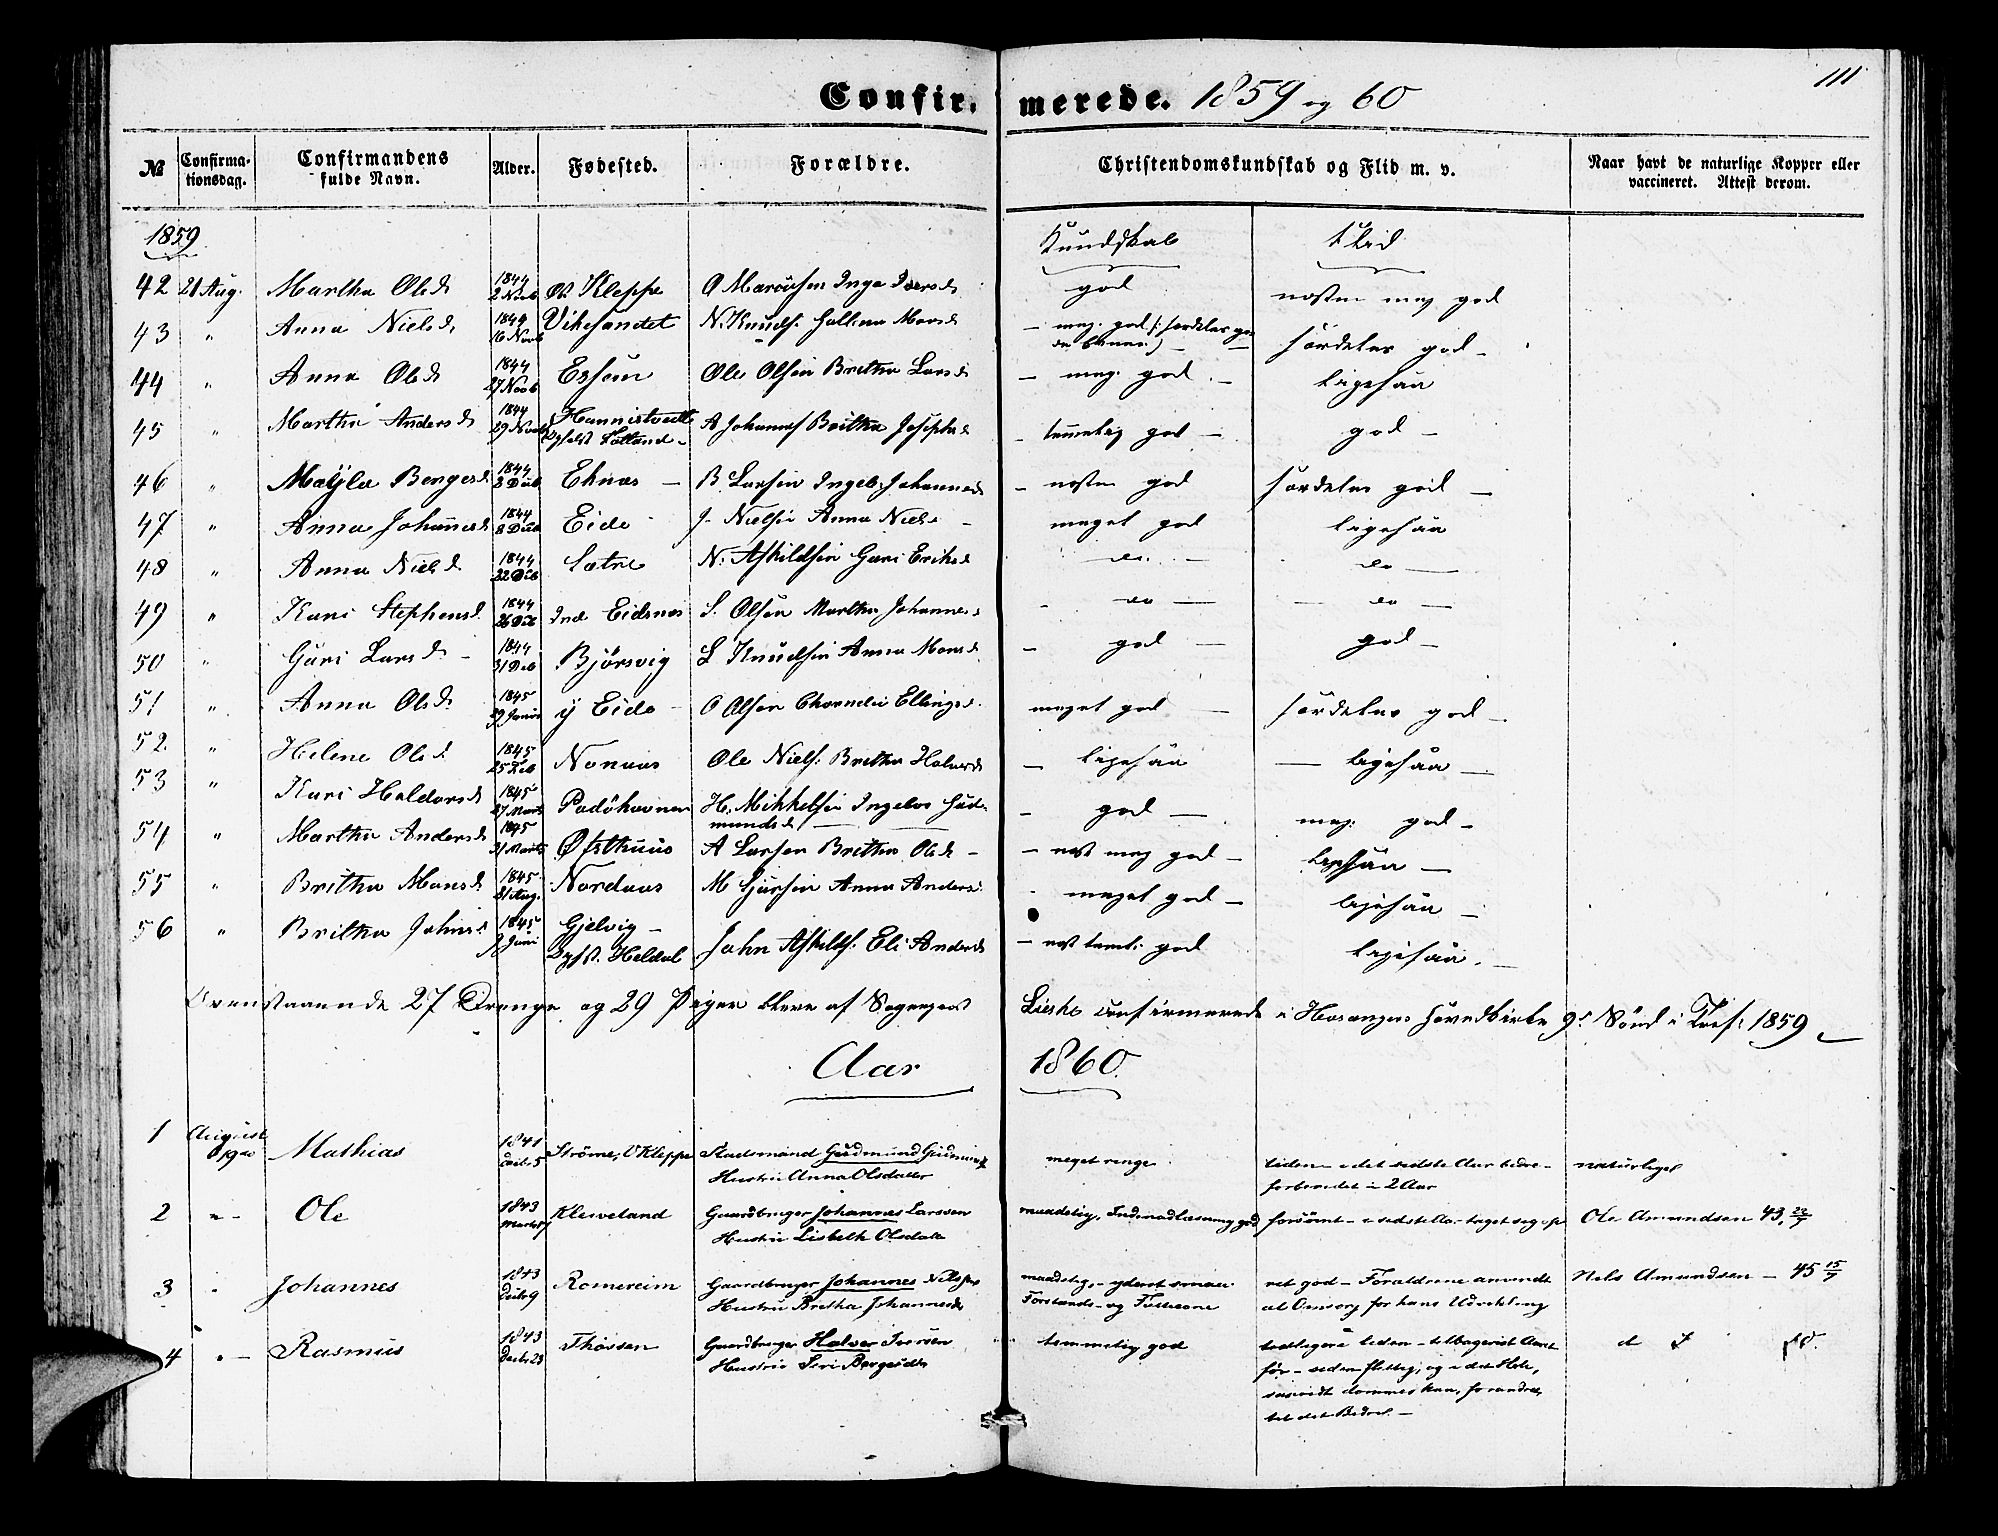 Confirmerede. 1859 og 60
111
№ Confirmationsdag. Confirmandens fulde Navn. Alder. Fødested. Forældre. Christendomskundskab og Flid m. v. Naar havt de naturlige Kopper eller vaccineret. Attest derom.
1859 Kundskab Flid
42 21 Aug. Martha Olsd 1844 2 Novb Kleppe O Inga Iversd god næsten meg god
43 " Anna Nielsd 1844 16 Novb Vikesandet N. Knuds. Monsd – meg. god særdeles god –
44 " Anna Olsd 1844 27 Novb Ole Olsen Britha Larsd – meg. god – ligesaa
45 " Martha Andersd 1844 29 Novb Hannistvedt A Johannes Britha Josephsd – temmelig god – god –
46 " Bengesd 1844 3 Deb Eknæs – B. Larsen Ingeb. Johannesd – næsten god særdeles god –
47 " Anna Johannesd 1844 8 Deb Eide J. Nielsen Anna Nielsd – meget god ligesaa
48 " Anna Nielsd 1844 22 Deb Sætre N. Askildsen Guri Eriksd do – do –
49 " Kari Stephensd 1844 26 Deb Ind Eidsnes S. Olsen Martha Johannesd – do – – do –
50 " Guri Larsd – 1844 31 Deb Bjørsvig L Knudsen Anna Monsd – god – god –
51 " Anna Olsd 1845 y Eide O Olsen Ellingsd. meget god – særdeles god –
52. " Helene Olsd 1845 25 Feb Nonaas Ole Niels. Britha Halvorsd – ligesaa – ligesaa –
53 " Kari Haldorsd 1845 27 Marts Padøhavnen H. Mikkelsen Ingebor Gudmundsd – god – meg. god –
54 " Martha Andersd 1845 31 Marts Østhuus A Larsen Britha Olsd – – næst meg god – ligesaa –
55 " Britha Monsd 1845 21 Aug. Nordaas M Gjersen Anna Andersd. meget god – ligesaa –
56 " Britha Johnsd 1845 9 Juni Gjelvig – Heldal John Askilds. Eli Andersd – næst teml. god ligesaa. –
Ovenstaaende 27 Drenge og 29 Piger bleve af Sogneprest Lieske confirmerede i Hosangers Hovedkirke 9de Sønd i Tref: 1859 –
Aar 1860.
1 August 19de Mathias 1841 Decbr 5 Strømø, V Kleppe Gudmund
Hustru Anna Olsdatter
meget ringe
liden – i det sidste Aar bedre –
forberedet i 2 Aar
naturlige
2 – " – Ole 1843 Kleiveland Gaardbruger Johannes Larssen
Hustru Lisbeth Olsdatt
maadelig, Indenadlæsning god forsømt – i sidste Aar taget seg op Ole Amundsen 43, 22/7
3 " Johannes 1843 Decbr 9 Romereim Gaardbruger Johannes Nilssen
Hustru Britha Johannesd
maadelig, – yderst smaae
Forstands – og
ret god – Forældrene anvendt
al Omsorg for hans Udvikling
Nils Amundsen – 45 15/7
4 " – Rasmus 1843 Decbr 23 Thossen Gaardbruger Halvor Iversen
Hustru Siri Bergesdtr
temmelig god
tidligere liden – tilbagevist Aaret
før – siden flittig, og i det Hele,
saavidt dømmes kan, forandret
til det Bedre. –